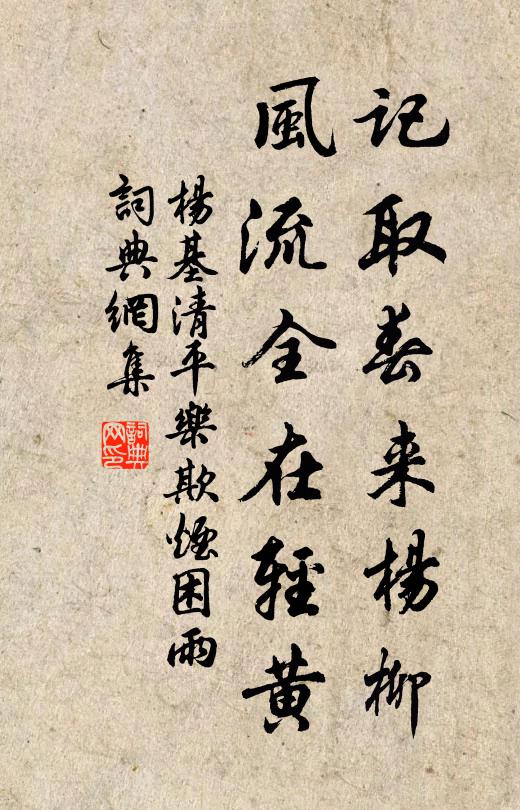 记取春来楊柳
風流全在輕黄
楊基清平樂欺煙困雨
詞典網集
詞典网印